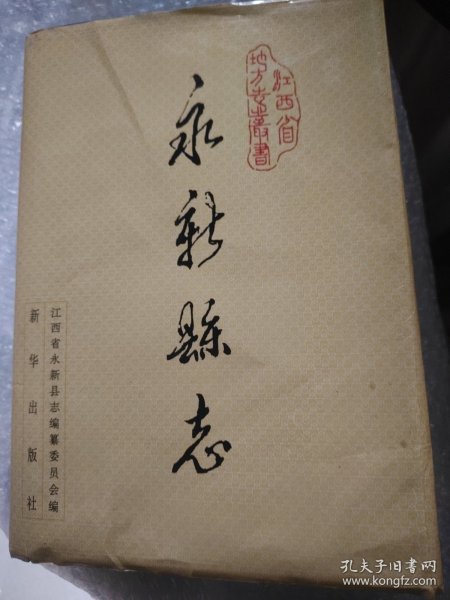 江西省
地方志叢書
永新縣志
江西省永新县志编纂委员会编
新华出版社
孔夫子旧书网
www.kongfz.com